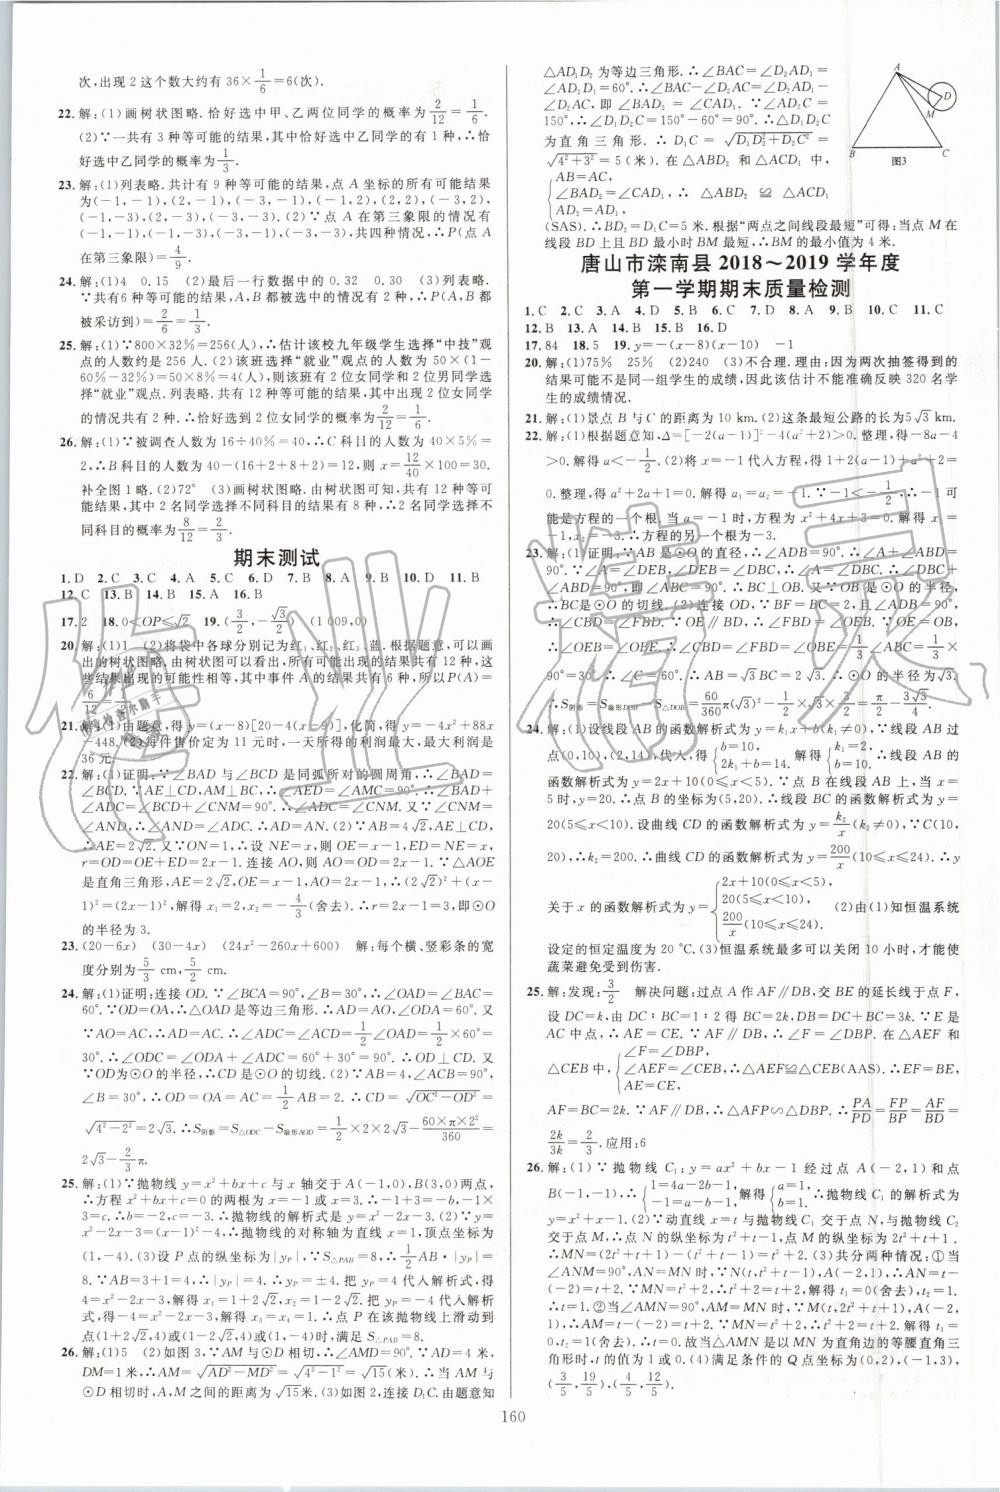 次,出现2这个数大约有36×1/6=6(次).
22.解:(1)画树状图略. 恰好选中甲、乙两位同学的概率为2/12=1/6.
(2)∵一共有3种等可能的结果,其中恰好选中乙同学的有1种,∴恰
好选中乙同学的概率为1/3.
23.解:(1)列表略.共计有9种等可能的结果,点A坐标的所有可能结果
为(-1,-1),(2,-1),(-3,-1),(-1,2),(2,2),(-3,2),
(-1,-3),(2,-3),(-3,-3).(2)∵点A在第三象限的情况有
(-1,-1),(-3,-1),(-1,-3),(-3,-3),共四种情况,∴P(点A
在第三象限)=4/9.
24.解:(1)4 0.15 (2)后一行数据中的0.32 (3)画树状图略.
∵共有6种等可能的结果,A、B都被采访到的结果有2种,∴P(A、B都
被采访到)=2/6=1/3.
25.解:(1)∵800×32%=256(人),∴估计该校九年级学生选择“中技”观
点的人数约是256人.(2)该班选择“就业”观点的人数为50×(1-
60%-32%)=50×8%=4(人),则该班有2位女同学和2位男同学选
择“就业”观点.列表略.共有12种等可能的结果数,其中出现2女同学
的情况共有2种.∴恰好选到2位女同学的概率为2/12=1/6.
26.解:(1)∵被调查人数为16÷40%=40,∴C科目的人数为40×5%=
2,∴B科目的人数为40-(16+2+8+2)=12,则x=12/40×100=30.
补全图1略.(2)72° (3)画树状图略.由树状图可知,共有12种等可能
的结果数,其中2名同学选择不同科目的结果有8种,∴2名同学选择不
同科目的概率为8/12=2/3.
期末测试
1.D 2.C 3.C 4.A 5.C 6.D 7.B 8.A 9.B 10.D 11.B
12.C 13.B 14.B 15.A 16.B
17.2 18.0<OP≤√2 19.(3/2,-√3/2) (1 009,0)
20.解:(1)1 (2)将袋中各球分别记为红1、红2、红3、蓝.根据题意,可以画
出的树状图略.由树状图可以看出,所有可能出现的结果共有12种,这
些结果出现的可能性相等,其中事件A的结果共有6种,所以P(A)=
6/12=1/2.
21.解:(1)由题意,得y=(x-8)[20-4(x-9)],化简,得y=-4x²+88x
-448.(2)每件售价定为11元时,一天的所得利润最大,最大利润是
36元.
22.解:(1)证明:∵∠BAD与∠BCD是同弧所对的圆周角,∴∠BAD=
∠BCD.∵AE⊥CD,AM⊥BC,∴∠AED=∠AMC=90°.∴∠BAD+
∠ADC=∠BCD+∠CNM=90°.∴∠ADC=∠CNM.∵∠CNM=
∠AND,∴∠AND=∠ADC.∴AD=AN.(2)∵AB=4√2,AE⊥CD,
∴AE=2√2.又∵ON=1,∴设NE=x,则OE=x-1,ED=NE=x,
r=OD=OE+ED=2x-1.连接AO,则AO=OD=2x-1.∵△AOE
是直角三角形,AE=2√2,OE=x-1,AO=2x-1,∴(2√2)²+(x-
1)²=(2x-1)²,解得x₁=2,x₂=-4/3(舍去).∴r=2x-1=3,即⊙O
的半径为3.
23.(20-6x) (30-4x) (24x²-260x+600) 解:每个横、竖彩条的宽
度分别为5/3 cm,5/2 cm.
24.解:(1)证明:连接OD.∵∠BCA=90°,∠B=30°,∴∠OAD=∠BAC=
60°.∵OD=OA,∴△OAD是等边三角形.∴AD=OA,∠ODA=60°.又
∵AO=AC,∴AD=AC.∴∠ADC=∠ACD=1/2∠OAD=1/2×60°=
30°.∴∠ODC=∠ODA+∠ADC=60°+30°=90°.∴OD⊥CD.又
∵OD为⊙O的半径,∴CD是⊙O的切线.(2)∵AB=4,∠ACB=90°,
∠B=30°,∴OD=OA=AC=1/2AB=2.∴CD=√(OC²-OD²)=
√(4²-2²)=2√3.∴S阴影=S△ODC-S扇形AOD=1/2×2×2√3-(60×π×2²)/360=
2√3-2/3π.
25.解:(1)∵抛物线y=x²+bx+c与x轴交于A(-1,0),B(3,0)两点,
∴方程x²+bx+c=0的两根为x=-1或x=3.∴-1+3=-b,-1×
3=c.∴b=-2,c=-3.∴抛物线的解析式是y=x²-2x-3.(2)∵y=
x²-2x-3=(x-1)²-4,∴抛物线的对称轴为直线x=1,顶点坐标为
(1,-4).(3)设P点的纵坐标为|yP|,∵S△PAB=8,∴1/2AB·|yP|=
8.∵AB=3+1=4,∴|yP|=4,∴yP=±4.把yP=4代入解析式,得
4=x²-2x-3,解得x₁=1+2√2,x₂=1-2√2.把yP=-4代入解析
式,得-4=x²-2x-3,解得x₃=x₄=1.∴点P在该抛物线上滑动到
点(1+2√2,4)或(1-2√2,4)或(1,-4)时,满足S△PAB=8.
26.解:(1)5 (2)如图3.∵AM与⊙D相切,∴∠AMD=90°.∵AD=4米,
DM=1米,∴AM=√(AD²-MD²)=√(4²-1²)=√15(米).∴当AM与
⊙D相切时,A,M之间的距离为√15米.(3)如图2,连接D₁C.由题意知
△AD₁D₂为等边三角形.∴∠BAC=∠D₂AD₁=
∠AD₁D₂=60°.∴∠BAC-∠D₂AC=∠D₂AD₁-
∠D₂AC,即∠BAD₂=∠CAD₁.∵∠AD₂C=
150°,∴∠D₁D₂C=150°-60°=90°.∴△D₁D₂C
为直角三角形.∴D₁C=√(D₁D₂²+D₂C²)=
√(4²+3²)=5(米).在△ABD₂和△ACD₁中,
{AB=AC,
∠BAD₂=∠CAD₁, ∴△ABD₂≌△ACD₁
AD₂=AD₁,
(SAS).∴BD₂=D₁C=5米.根据“两点之间线段最短”可得:当点M在
线段BD上且BD最小时BM最短,∴BM的最小值为4米.
A
D
M
B C
图3
唐山市滦南县2018～2019学年度
第一学期期末质量检测
1.C 2.C 3.A 4.D 5.B 6.C 7.D 8.A 9.B 10.C 11.C
12.B 13.A 14.B 15.B 16.D
17.84 18.5 19.y=-(x-8)(x-10) -1
20.解:(1)75% 25% (2)240 (3)不合理.理由:因为两次抽签得到的
结果可能不是同一组学生的成绩,因此该估计不能准确反映320名学
生的成绩情况.
21.解:(1)景点B与C的距离为10 km.(2)这条最短公路的长为5√3 km.
22.解:(1)根据题意知,Δ=[-2(a-1)]²-4(a²+2)>0.整理,得-8a-4
>0.解得a<-1/2.(2)将x=-1代入方程,得1+2(a-1)+a²+2=
0.整理,得a²+2a+1=0.解得a₁=a₂=-1.∵-1<-1/2,∴-1可
能是方程的一个根.当a=-1时,方程为x²+4x+3=0.解得x=
-1或x=-3.∴方程的另一个根为-3.
23.解:(1)证明:∵AB是⊙O的直径,∴∠ADB=90°.∴∠A+∠ABD=
90°.∵∠A=∠DEB,∠DEB=∠DBC,∴∠A=∠DBC.∴∠DBC+
∠ABD=90°,即∠ABC=90°.∴BC⊥OB.又∵OB是⊙O的半径,
∴BC是⊙O的切线.(2)连接OD,∵BF=BC=2,且∠ADB=90°,
∴∠CBD=∠FBD.∵OE∥BD,∴∠FBD=∠OEB.∵OE=OB,
∴∠OEB=∠OBE.∴∠CBD=∠FBD=∠OBE=1/3∠ABC=1/3×
90°=30°.∴∠C=60°.∴AB=√3BC=2√3.∴⊙O的半径为√3.
∴S阴影=S扇形DOB-S△DOB=60/360π(√3)²-√3/4×(√3)²=π/2-3√3/4.
24.解:(1)设线段AB的函数解析式为y=k₁x+b(k₁≠0),∵线段AB过
点(0,10),(2,14),代入,得{b=10,2k₁+b=14.解得{k₁=2,b=10.∴线段AB的
函数解析式为y=2x+10(0≤x<5).∵点B在线段AB上,∴当x=
5时,y=20.∴点B的坐标为(5,20).∴线段BC的函数解析式为y=
20(5≤x<10).设曲线CD的函数解析式为y=k₂/x(k₂≠0),∵C(10,
20),∴k₂=200.∴曲线CD的函数解析式为y=200/x(10≤x≤24).∴y
关于x的函数解析式为{2x+10(0≤x<5),
20(5≤x<10),
200/x(10≤x≤24).(2)由(1)知恒温系统
设定的恒定温度为20 ℃.(3)恒温系统最多可以关闭10小时,才能使
蔬菜避免受到伤害.
25.解:发现:3/2 解决问题:过点A作AF∥DB,交BE的延长线于点F,
设DC=k,由DC∶BC=1∶2得BC=2k,DB=DC+BC=3k.∵E是
AC中点,∴AE=CE.∵AF∥DB,∴∠F=∠DBP.在△AEF和
△CEB中,{∠F=∠DBP,
∠AEF=∠CEB,∴△AEF≌△CEB(AAS).∴EF=BE,
AE=CE,
AF=BC=2k.∵AF∥DB,∴△AFP∽△DBP.∴PA/PD=FP/BP=AF/BD=
2k/3k=2/3.应用:6
26.解:(1)∵抛物线C₁:y=ax²+bx-1经过点A(-2,1)和点
B(-1,-1),∴{1=4a-2b-1,-1=a-b-1.解得{a=1,b=1.∴抛物线C₁的解析式为
y=x²+x-1.(2)∵动直线x=t与抛物线C₁交于点N,与抛物线C₂
交于点M,∴点N的纵坐标为t²+t-1,点M的纵坐标为2t²+t+1.
∴MN=(2t²+t+1)-(t²+t-1)=t²+2.(3)共分两种情况:①当
∠ANM=90°,AN=MN时,∵N(t,t²+t-1),A(-2,1),∴AN=t-
(-2)=t+2.∵MN=t²+2,∴t²+2=t+2,解得t₁=0(舍去),t₂=1.
∴t=1.②当∠AMN=90°,AM=MN时,∵M(t,2t²+t+1),A(-2,
1),∴AM=t-(-2)=t+2.∵MN=t²+2,∴t²+2=t+2,解得t₁=
0,t₂=1(舍去).∴t=0.故当△AMN是以MN为直角边的等腰直角三
角形时,t的值为1或0.(4)满足条件的Q点坐标为(0,2),(-1,3),
(3/5,19/5),(4/5,12/5).
160